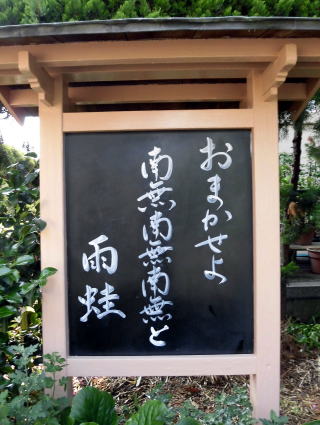 おまかせよ
南無南無南無と
雨蛙